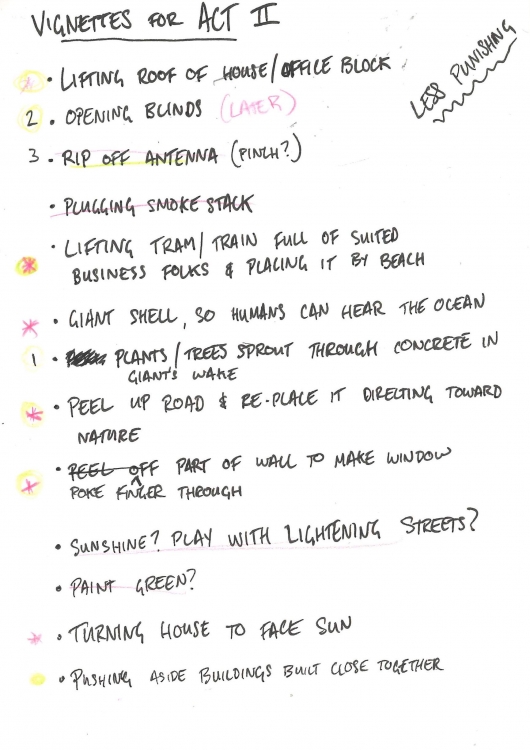 VIGNETTES FOR ACT II
LESS PUNISHING
* • LIFTING ROOF OF HOUSE/OFFICE BLOCK
2 • OPENING BLINDS (LATER)
3 • RIP OFF ANTENNA (PINCH?)
• PLUGGING SMOKE STACK
* • LIFTING TRAM/TRAIN FULL OF SUITED
BUSINESS FOLKS & PLACING IT BY BEACH
* • GIANT SHELL, SO HUMANS CAN HEAR THE OCEAN
1 • PLANTS/TREES SPROUT THROUGH CONCRETE IN
GIANT'S WAKE
* • PEEL UP ROAD & RE-PLACE IT DIRECTING TOWARD
NATURE
* • PEEL OFF PART OF WALL TO MAKE WINDOW
POKE FINGER THROUGH
• SUNSHINE? PLAY WITH LIGHTENING STREETS?
• PAINT GREEN?
* • TURNING HOUSE TO FACE SUN
• PUSHING ASIDE BUILDINGS BUILT CLOSE TOGETHER